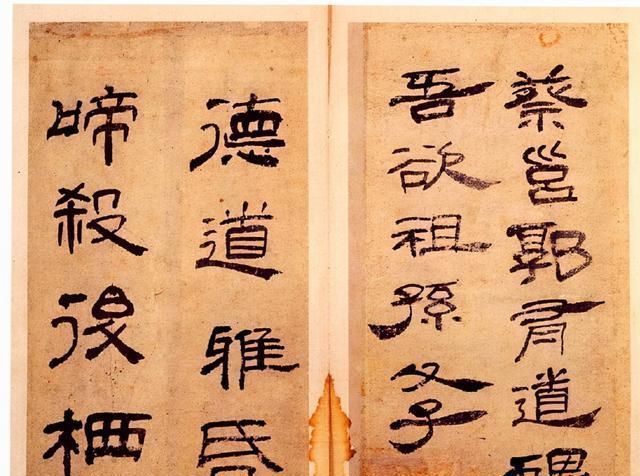 蔡邕郭有道碑
吾欲祖孫
德道雅昏
啼殺後栖